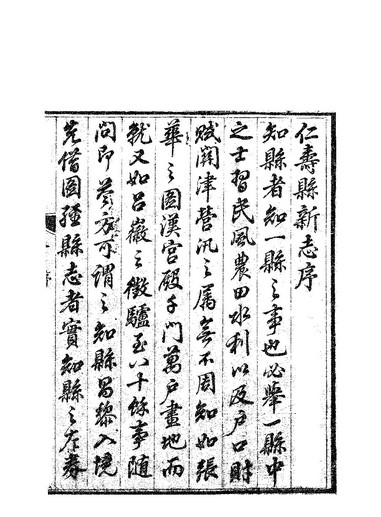 仁壽縣新志序
知縣者知一縣之事也必舉一縣中
之士習民風農田水利以及戶口財
賦關津營汛之屬無不周知如張
華之圖漢宮殿千門萬戶畫地而
就又如呂巖之徵驢至八十餘事隨
問即答方可謂之知縣昌黎入境
先借圖經縣志者實知縣之左券
序